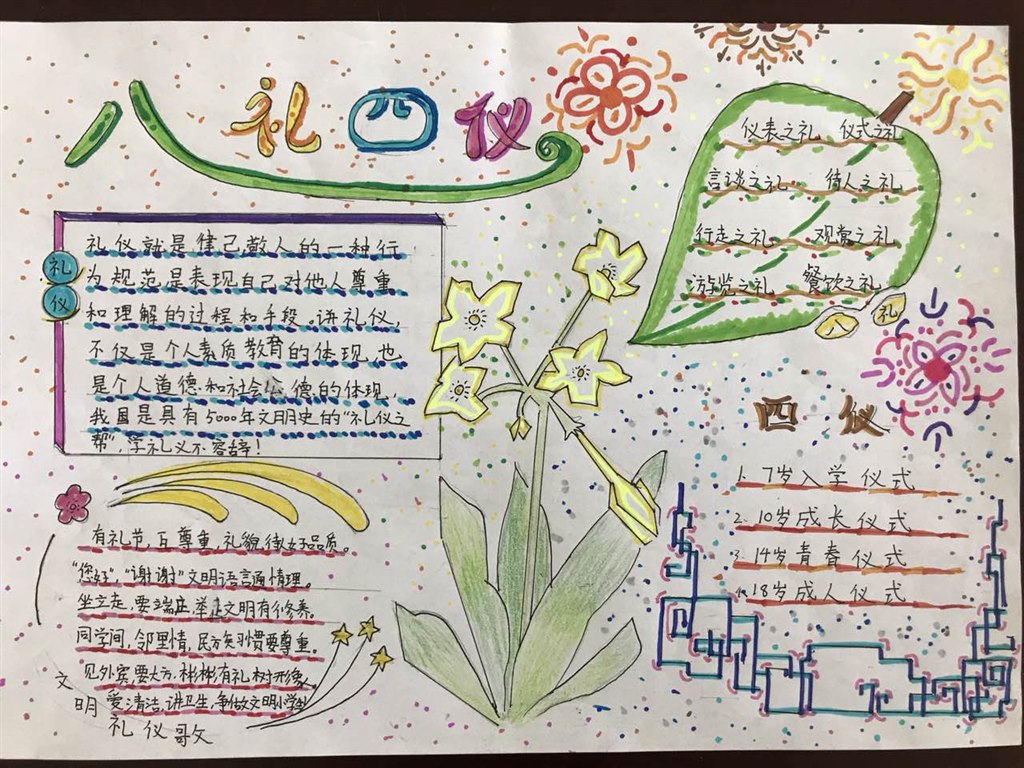 八礼四仪
礼仪
礼仪就是律己敬人的一种行
为规范是表现自己对他人尊重
和理解的过程和手段。讲礼仪，
不仅是个人素质教育的体现，也
是个人道德和社会公德的体现
我国是具有5000年文明史的“礼仪之
帮”，学礼义不容辞！
仪表之礼 仪式之礼
言谈之礼 待人之礼
行走之礼 观赏之礼
游览之礼 餐饮之礼
八礼
四仪
1. 7岁入学仪式
2. 10岁成长仪式
3. 14岁青春仪式
4. 18岁成人仪式
有礼节，互尊重，礼貌待好品质。
“您好”，“谢谢”文明语言通情理。
坐立走，要端庄，举止文明有修养。
同学间，邻里情，民方矢习惯要尊重。
见外宾，要大方，彬彬有礼树形象。
爱清洁，讲卫生，争做文明小学
文明
礼仪歌